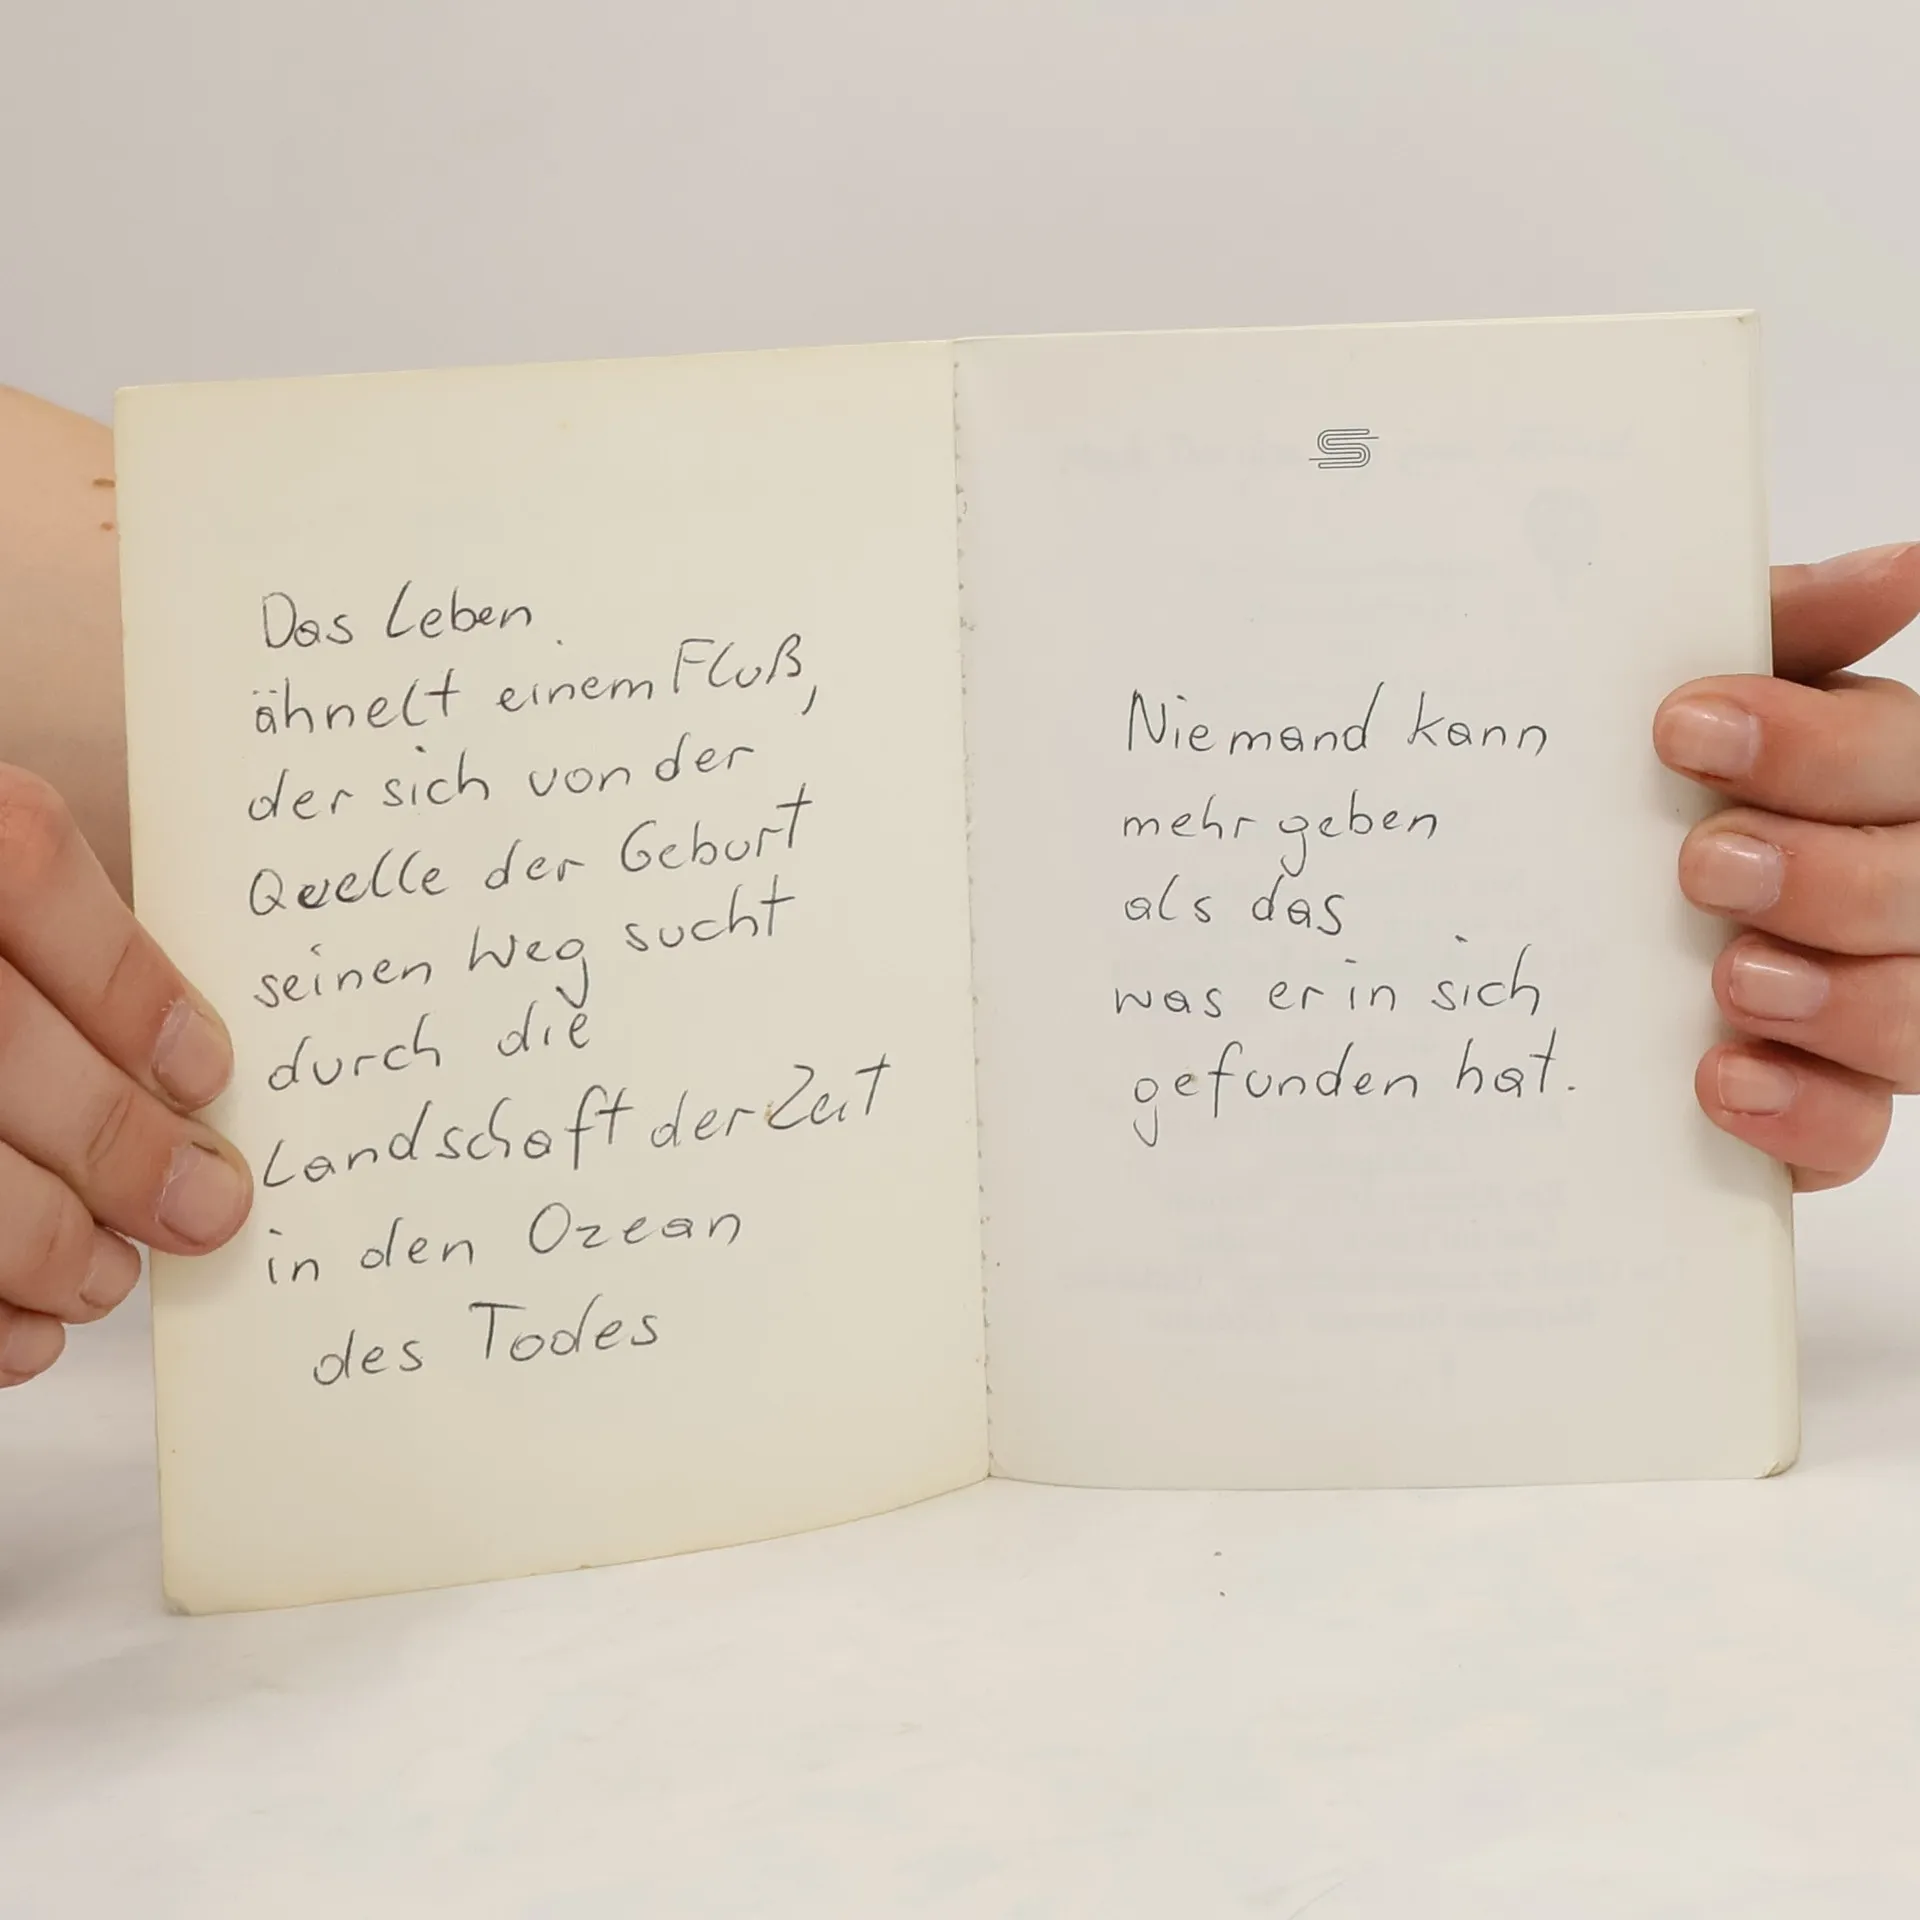 Das Leben
ähnelt einem Fluß,
der sich von der
Quelle der Geburt
seinen Weg sucht
durch die
Landschaft der Zeit
in den Ozean
des Todes
Niemand kann
mehr geben
als das
was er in sich
gefunden hat.